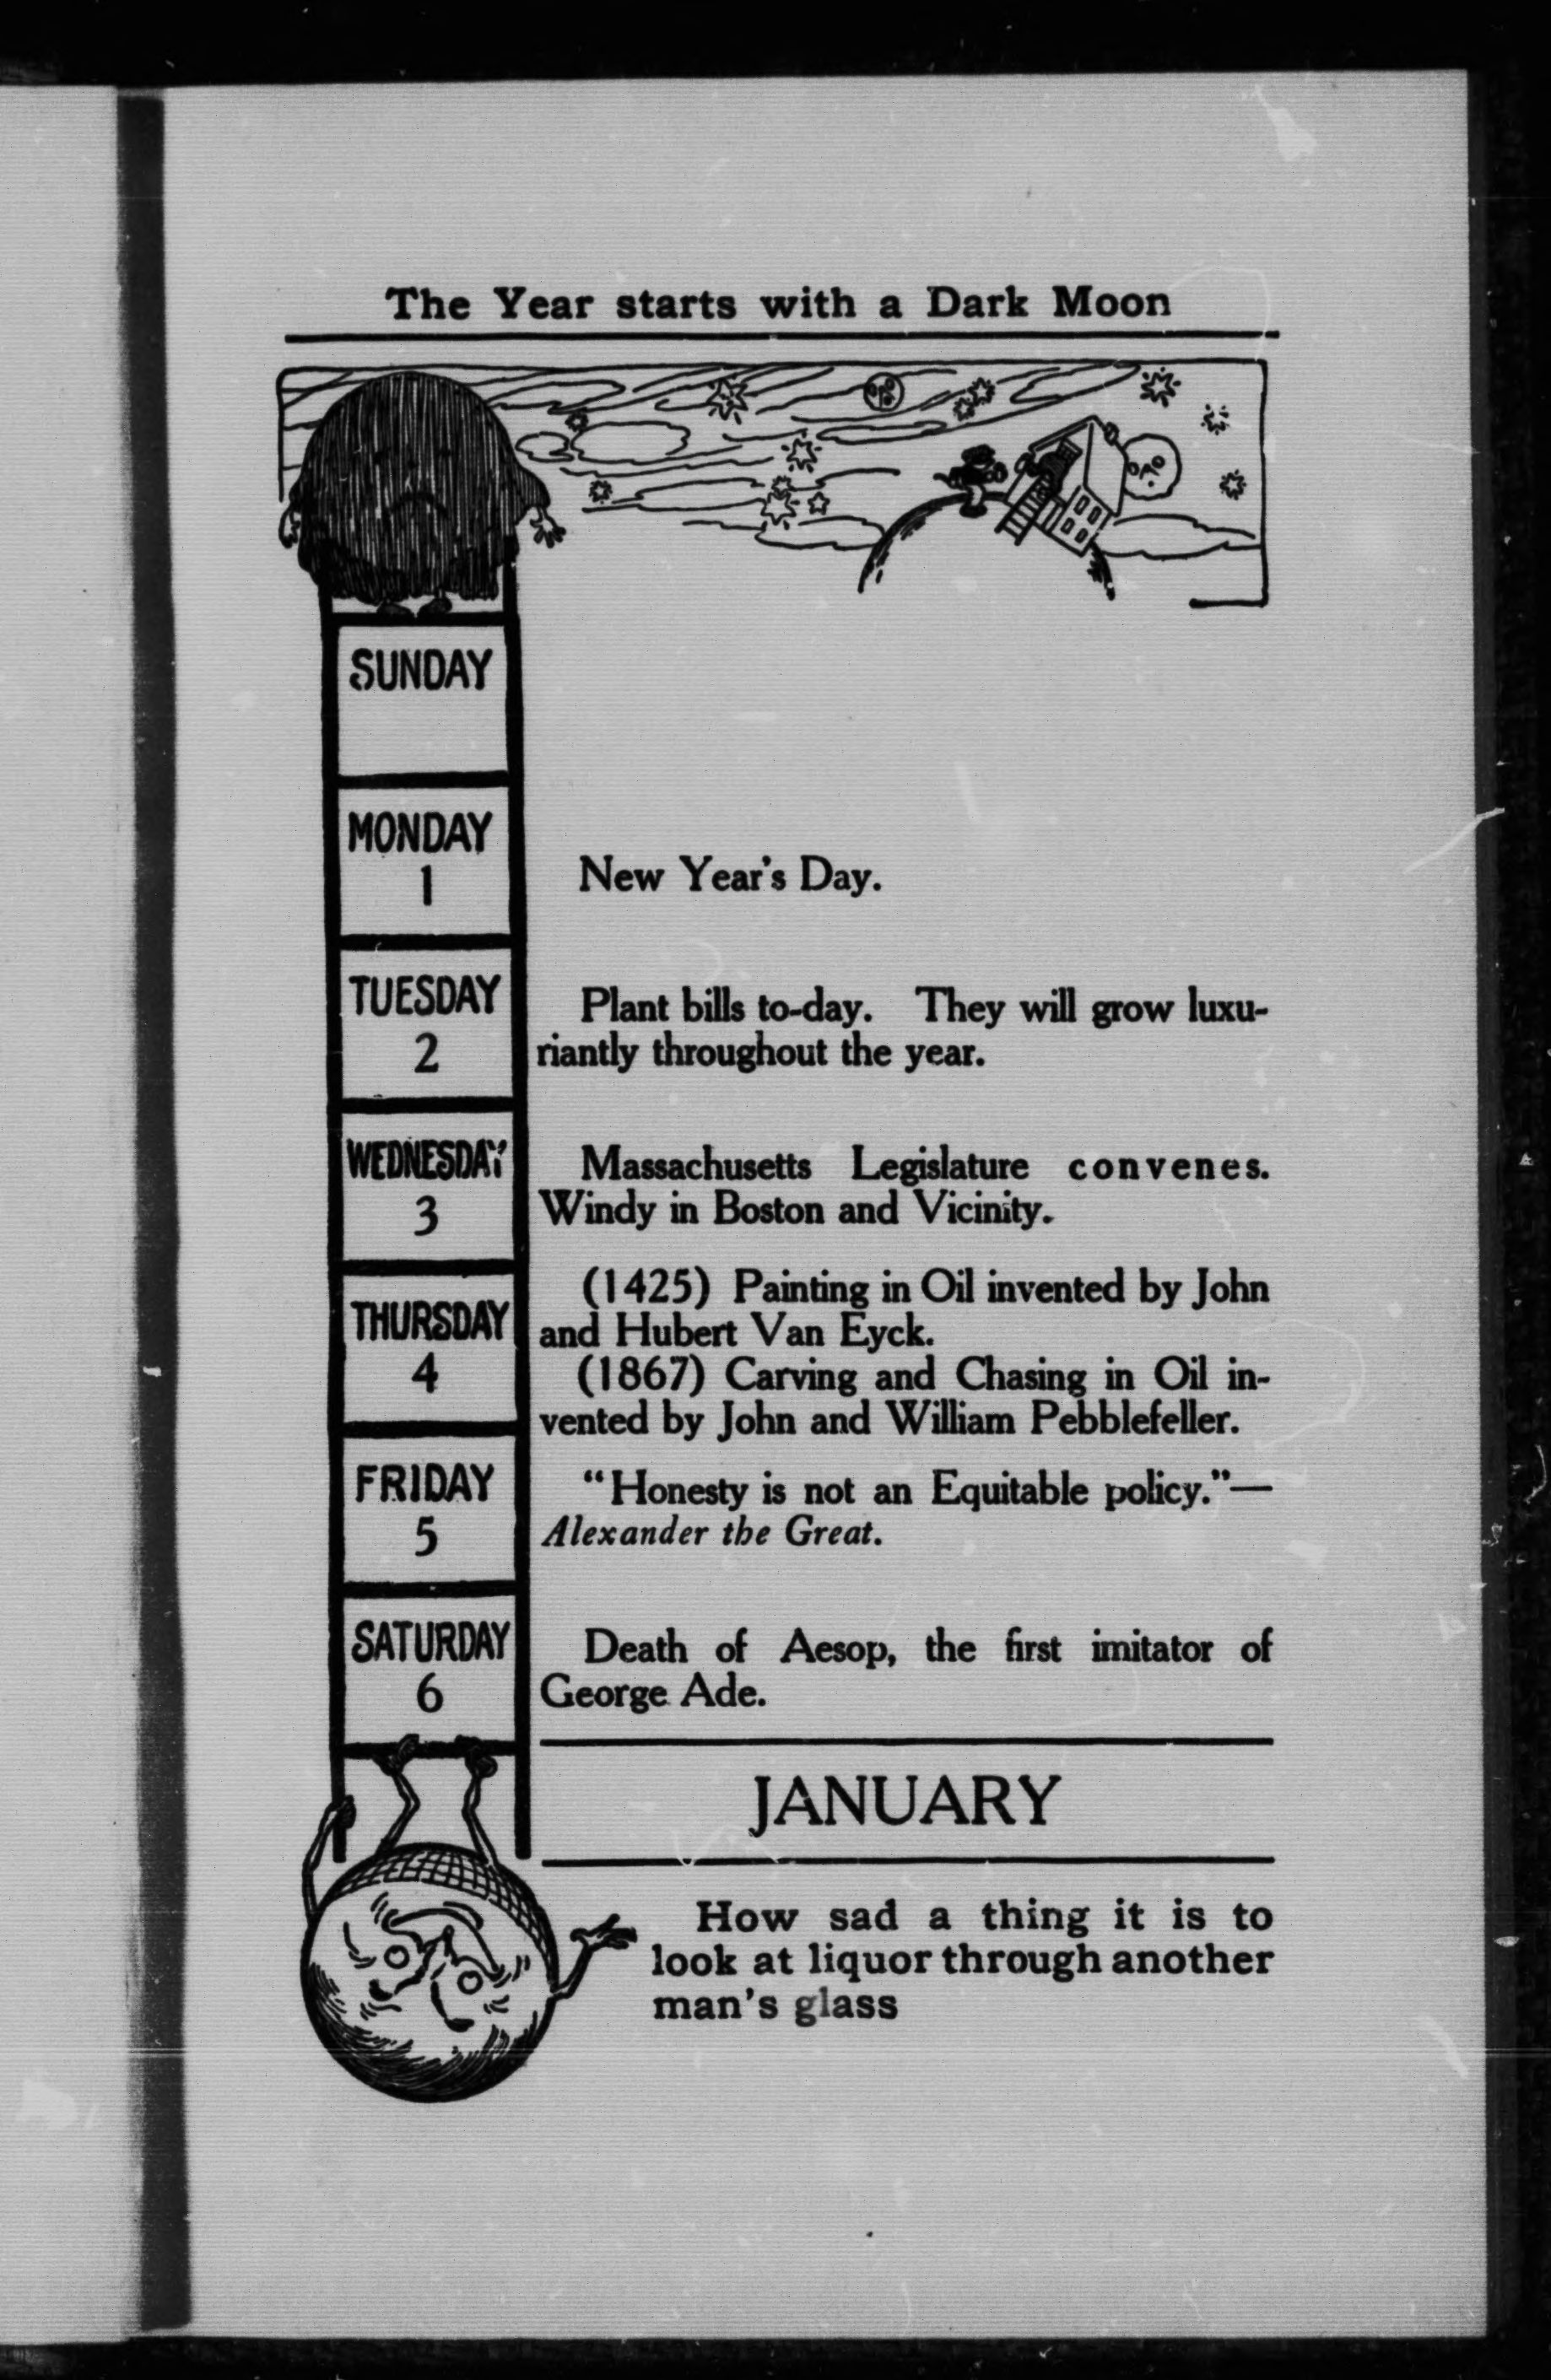 The Year starts with a Dark Moon
SUNDAY
MONDAY
1
New Year's Day.
TUESDAY
2
Plant bills to-day. They will grow luxu-
riantly throughout the year.
WEDNESDAY
3
Massachusetts Legislature convenes.
Windy in Boston and Vicinity.
THURSDAY
4
(1425) Painting in Oil invented by John
and Hubert Van Eyck.
(1867) Carving and Chasing in Oil in-
vented by John and William Pebblefeller.
FRIDAY
5
"Honesty is not an Equitable policy."—
Alexander the Great.
SATURDAY
6
Death of Aesop, the first imitator of
George Ade.
JANUARY
How sad a thing it is to
look at liquor through another
man's glass